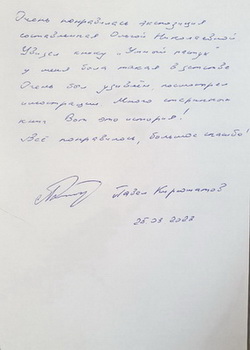 Очень понравилась экспозиция
составленная Ольгой Николаевной
Увидел книгу „Умный
у меня была такая в детстве
Очень был удивлён, посмотрел
иностранию Много старинных
книг Вот это история!
Всё понравилось, большое спасибо!
Павел
25.03 2023